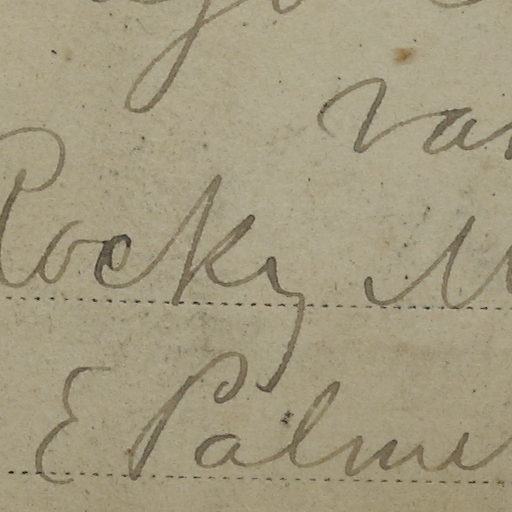 var
Rocky M
E Palme